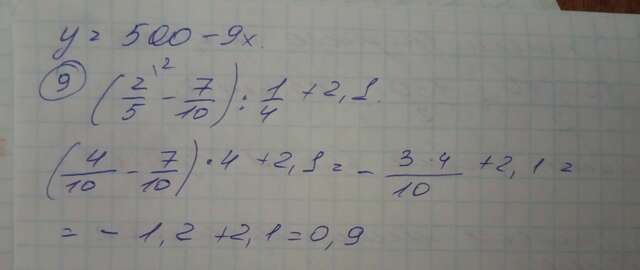 y = 500 - 9x.
9 (2/5 \2 - 7/10) : 1/4 + 2,1.
(4/10 - 7/10) · 4 + 2,1 = - 3·4/10 + 2,1 =
= - 1,2 + 2,1 = 0,9